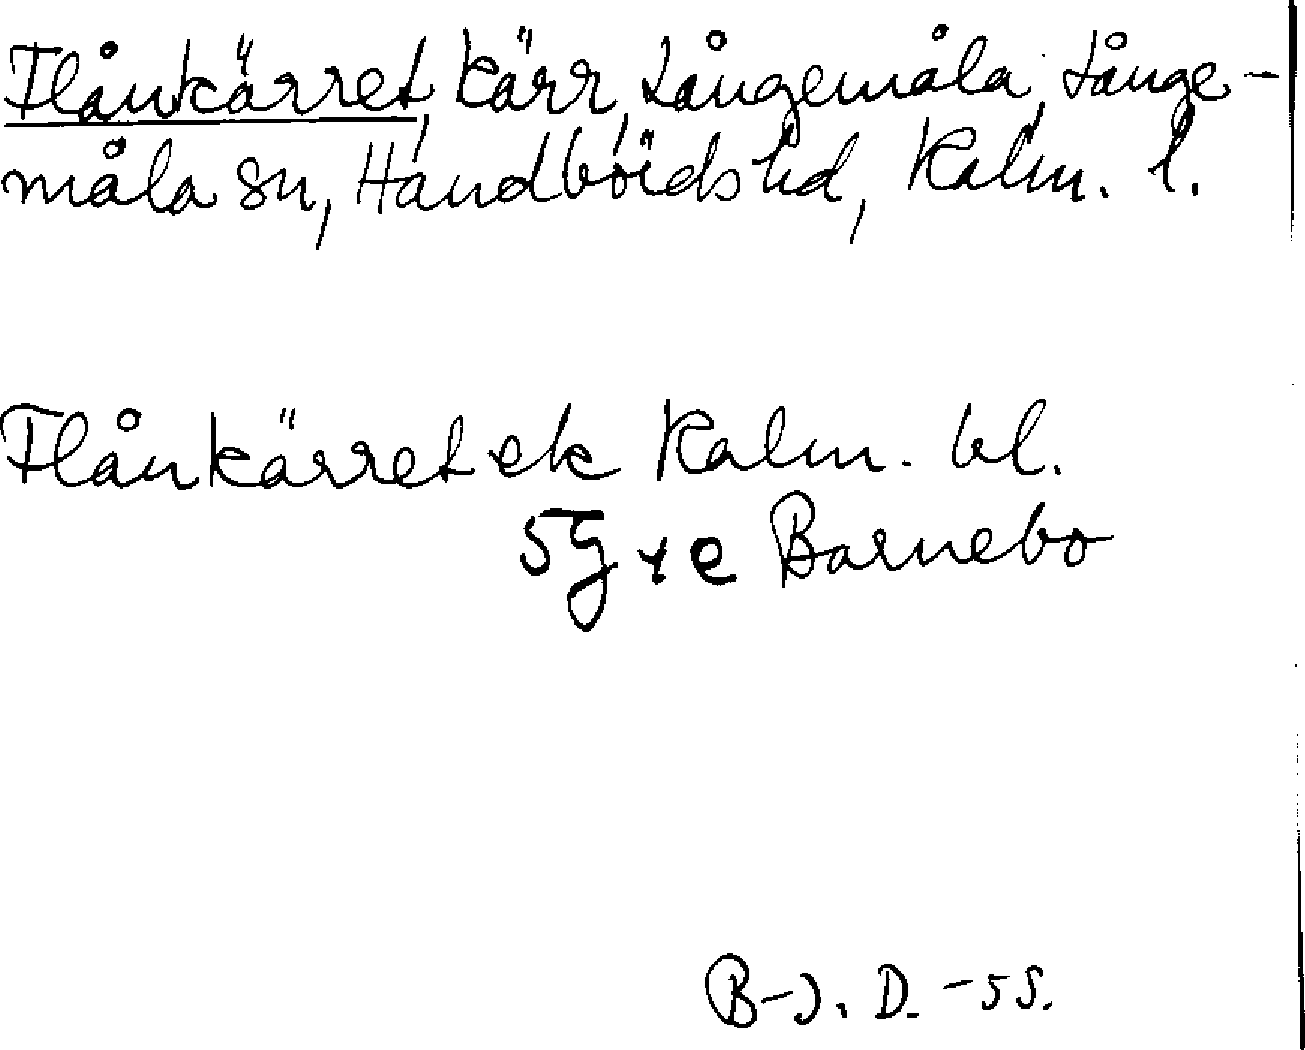 Flånkärret, kärr, Långemåla, Långe-
måla sn, Handbörds hd, Kalm. l.
Flånkärret ek Kalm. bl.
5G y e Barnebo
B-J. D. -55.